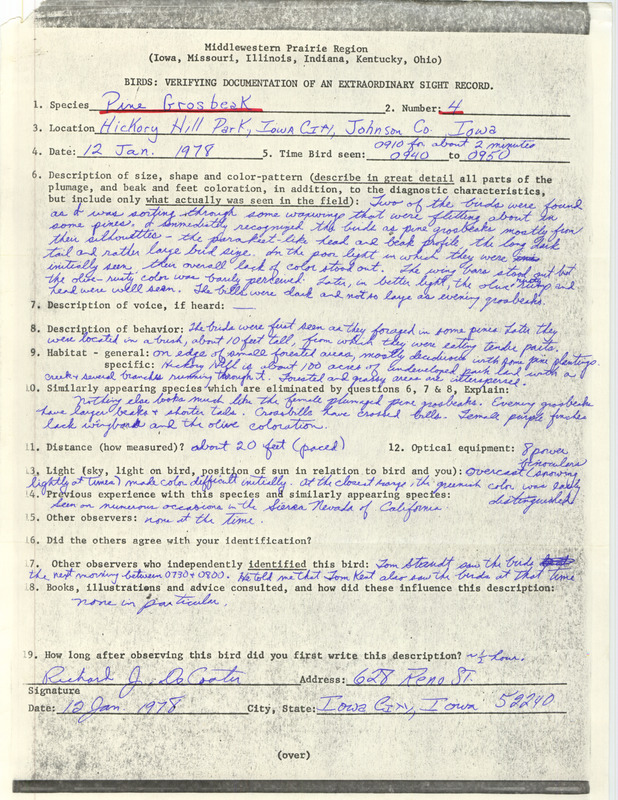 Middlewestern Prairie Region
(Iowa, Missouri, Illinois, Indiana, Kentucky, Ohio)
BIRDS: VERIFYING DOCUMENTATION OF AN EXTRAORDINARY SIGHT RECORD.
1. Species Pine Grosbeak 2. Number: 4
3. Location Hickory Hill Park, Iowa City, Johnson Co. Iowa
0910 for about 2 minutes
4. Date: 12 Jan. 1978 5. Time Bird seen: 0940 to 0950
6. Description of size, shape and color-pattern (describe in great detail all parts of the
plumage, and beak and feet coloration, in addition, to the diagnostic characteristics,
but include only what actually was seen in the field): Two of the birds were found
as I was sorting through some waxwings that were flitting about in
some pines. I immediately recognized the birds as pine grosbeaks mostly from
their silhouettes - the parakeet-like head and beak profile, the long dark
tail and rather large bird size. In the poor light in which they were
initially seen, their overall lack of color stood out. The wing bars stood out but
the olive-rusty color was barely perceived. Later, in better light, the olive rump and
head were well seen. The bills were dark and not so large as evening grosbeaks.
7. Description of voice, if heard: —
8. Description of behavior: The birds were first seen as they foraged in some pines. Later they
were located in a bush, about 10 feet tall, from which they were eating tender parts.
9. Habitat - general: on edge of small forested areas, mostly deciduous with some pine plantings.
specific: Hickory Hill is about 100 acres of undeveloped park land with a
creek & several branches running through it. Forested and grassy areas are interspersed.
10. Similarly appearing species which are eliminated by questions 6, 7 & 8, Explain:
Nothing else looks much like the female plumaged pine grosbeaks. Evening grosbeaks
have larger beaks & shorter tails. Crossbills have crossed bills. Female purple finches
lack wingbars and the olive coloration.
11. Distance (how measured)? about 20 feet (paced) 12. Optical equipment: 8 power
binoculars
13. Light (sky, light on bird, position of sun in relation to bird and you): overcast (snowing
lightly at times) made color difficult initially. At the closest range, the greenish color was easily
distinguished.
14. Previous experience with this species and similarly appearing species:
Seen on numerous occasions in the Sierra Nevada of California
15. Other observers: none at the time.
16. Did the others agree with your identification?
17. Other observers who independently identified this bird: Tom Staudt saw the birds
the next morning between 0730 & 0800. He told me that Tom Kent also saw the birds at that time
18. Books, illustrations and advice consulted, and how did these influence this description:
none in particular.
19. How long after observing this bird did you first write this description? ~ ½ hour.
Richard J. DeCoster Address: 628 Reno St.
Signature
Date: 12 Jan. 1978 City, State: Iowa City, Iowa 52240
(over)